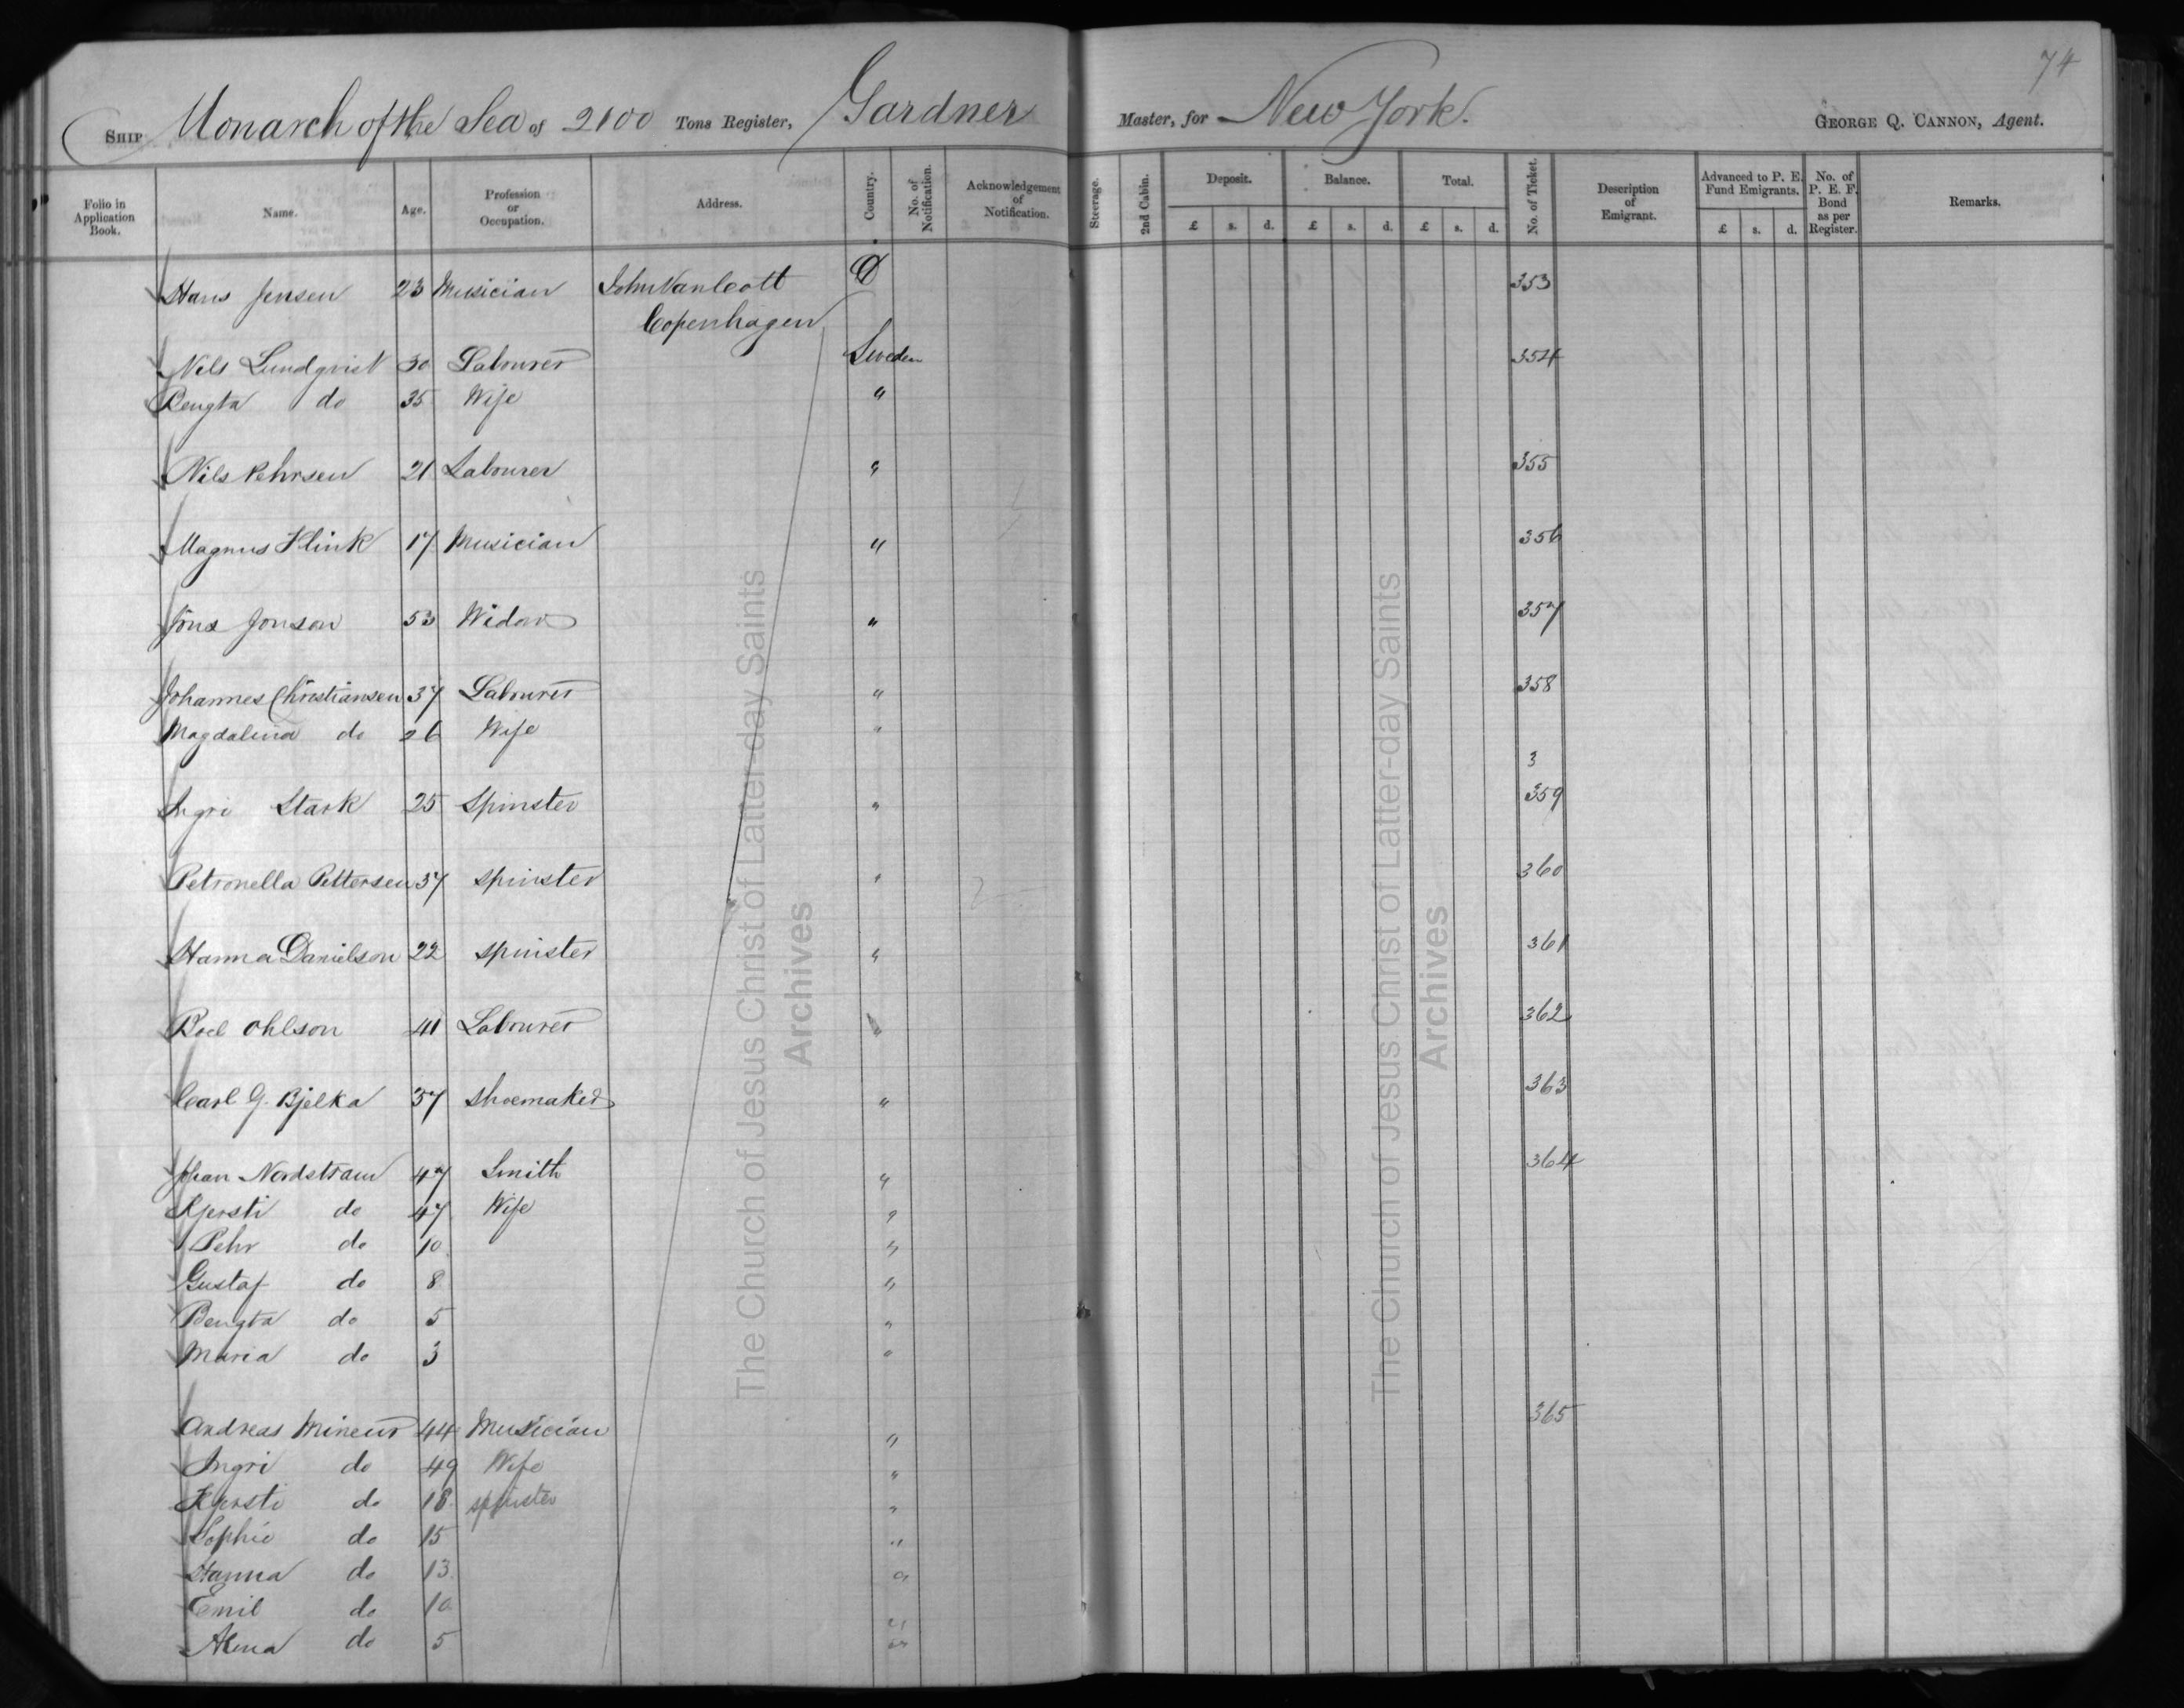 74
SHIP Monarch of the Sea of 2100 Tons Register, Gardner Master, for New York. GEORGE Q. CANNON, Agent.
Folio in Application Book. Name. Age. Profession or Occupation. Address. Country. No. of Notification. Acknowledgement of Notification. Steerage. 2nd Cabin. Deposit. Balance. Total. No. of Ticket. Description of Emigrant. Advanced to P. E. Fund Emigrants. No. of P. E. F. Bond as per Register. Remarks.
£ s. d. £ s. d. £ s. d. £ s. d.
Hans Jensen 23 Musician John VanCott D 353
Copenhagen
Nils Lundqvist 30 Labourer Sweden 354
Bengta do 35 Wife "
Nils Pehrsen 21 Labourer " 355
Magnus Klink 17 Musician " 356
Jöns Jonson 53 Widow " 357
Johannes Christiansen 37 Labourer " 358
Magdalina do 26 Wife "
3
Ingri Stark 25 Spinster " 359
Petronella Pettersen 37 spinster " 360
Hanna Danielson 22 spinster " 361
Boel Ohlson 41 Labourer " 362
Carl G. Bjelka 37 shoemaker " 363
Johan Nordstram 47 Smith " 364
Kjersti do 47 Wife "
Pehr do 10 "
Gustaf do 8 "
Bengta do 5 "
Maria do 3 "
Andreas Mineur 44 Musician " 365
Ingri do 49 Wife "
Kjersti do 18 spinster "
Sophie do 15 "
Hanna do 13 "
Emil do 10 "
Alma do 5 "
The Church of Jesus Christ of Latter-day Saints
Archives
The Church of Jesus Christ of Latter-day Saints
Archives